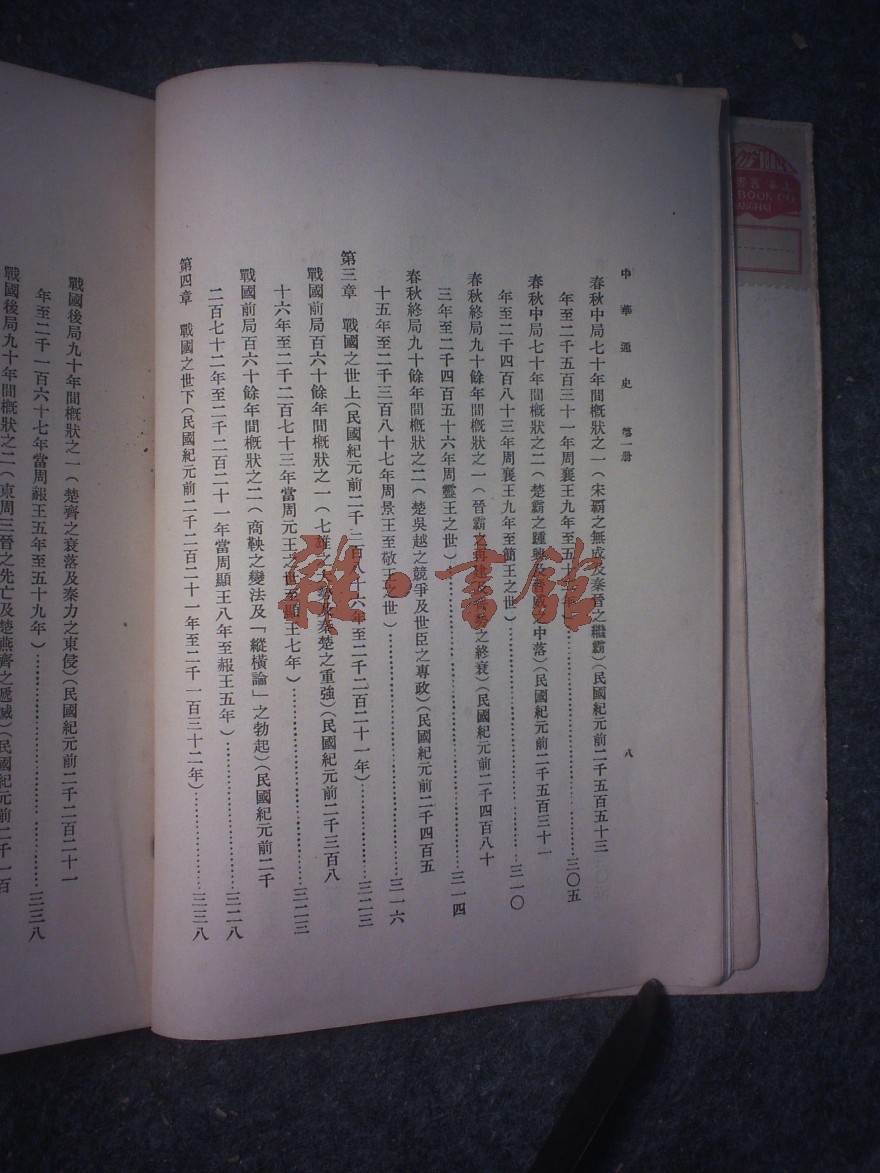 中華通史 第一册
八
春秋中局七十年間概狀之一(宋霸之無成及秦晉之繼霸)(民國紀元前二千五百五十三
年至二千五百三十一年周襄王九年至五十三年)……三〇五
春秋中局七十年間概狀之二(楚霸之踵興及晉威之中落)(民國紀元前二千五百三十一
年至二千四百八十三年周襄王九年至簡王之世)……三一〇
春秋終局九十餘年間概狀之一(晉霸之再建及 之終衰)(民國紀元前二千四百八十
三年至二千四百五十六年周靈王之世)……三一四
春秋終局九十餘年間概狀之二(楚吳越之競爭及世臣之專政)(民國紀元前二千四百五
十五年至二千三百八十七年周景王至敬王之世)……三一六
第三章 戰國之世上(民國紀元前二千三百八十六年至二千二百二十一年)……三二三
戰國前局百六十餘年間概狀之一(七雄之大勢及秦楚之重強)(民國紀元前二千三百八
十六年至二千二百七十三年當周元王之世至顯王七年)……三二三
戰國前局百六十餘年間概狀之二(商鞅之變法及「縱橫論」之勃起)(民國紀元前二千
二百七十二年至二千二百二十一年當周顯王八年至赧王五年)……三二八
第四章 戰國之世下(民國紀元前二千二百二十一年至二千一百三十二年)……三三八
戰國後局九十年間概狀之一(楚齊之衰落及秦力之東侵)(民國紀元前二千二百二十一
年至二千一百六十七年當周赧王五年至五十九年)……三三八
戰國後局九十年間概狀之二(東周三晉之先亡及楚燕齊之遞滅)(民國紀元前二千一百
書館
BOOK CO